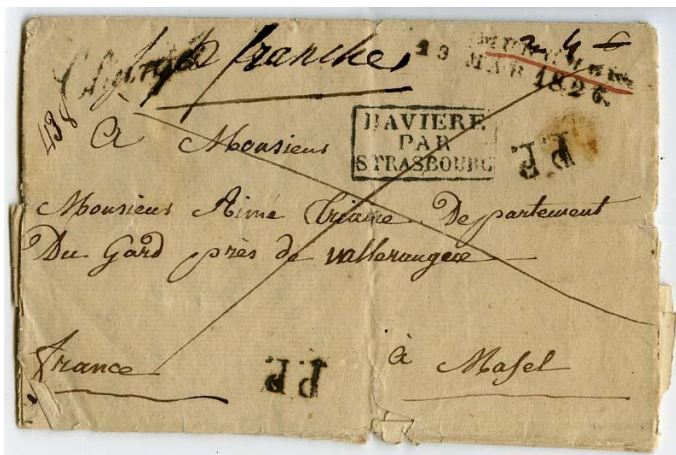 Chargé franche
13 MAR 1826
438
BAVIERE
PAR
STRASBOURG
P.P.
A Monsieur
Monsieur Aimé Departement
Du Gard près de valleraugue
france
P.P.
à Masel